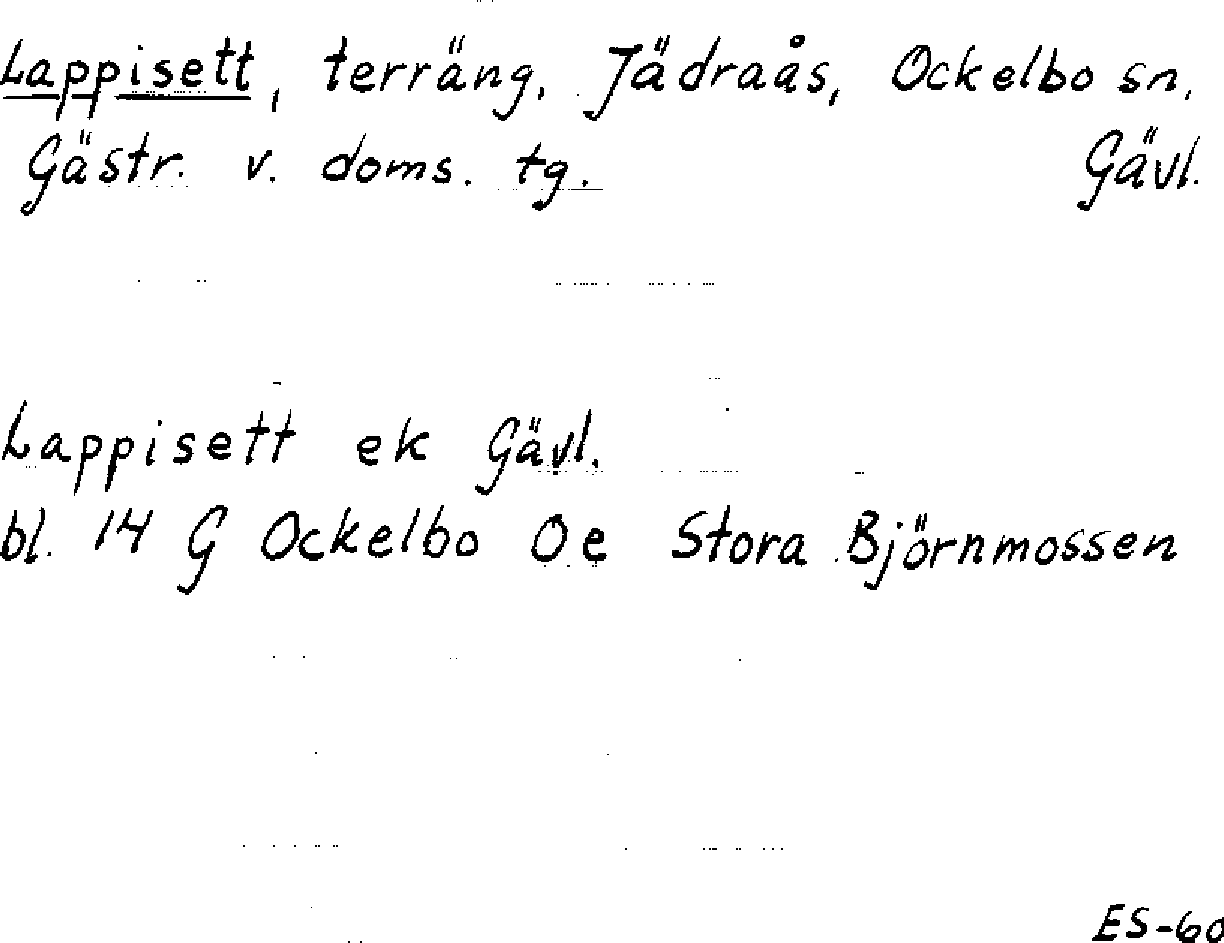 Lappisett, terräng, Jädraås, Ockelbo sn,
Gästr. v. doms. tg. Gävl.
Lappisett ek Gävl.
bl. 14 G Ockelbo 0e Stora Björnmossen
ES-60